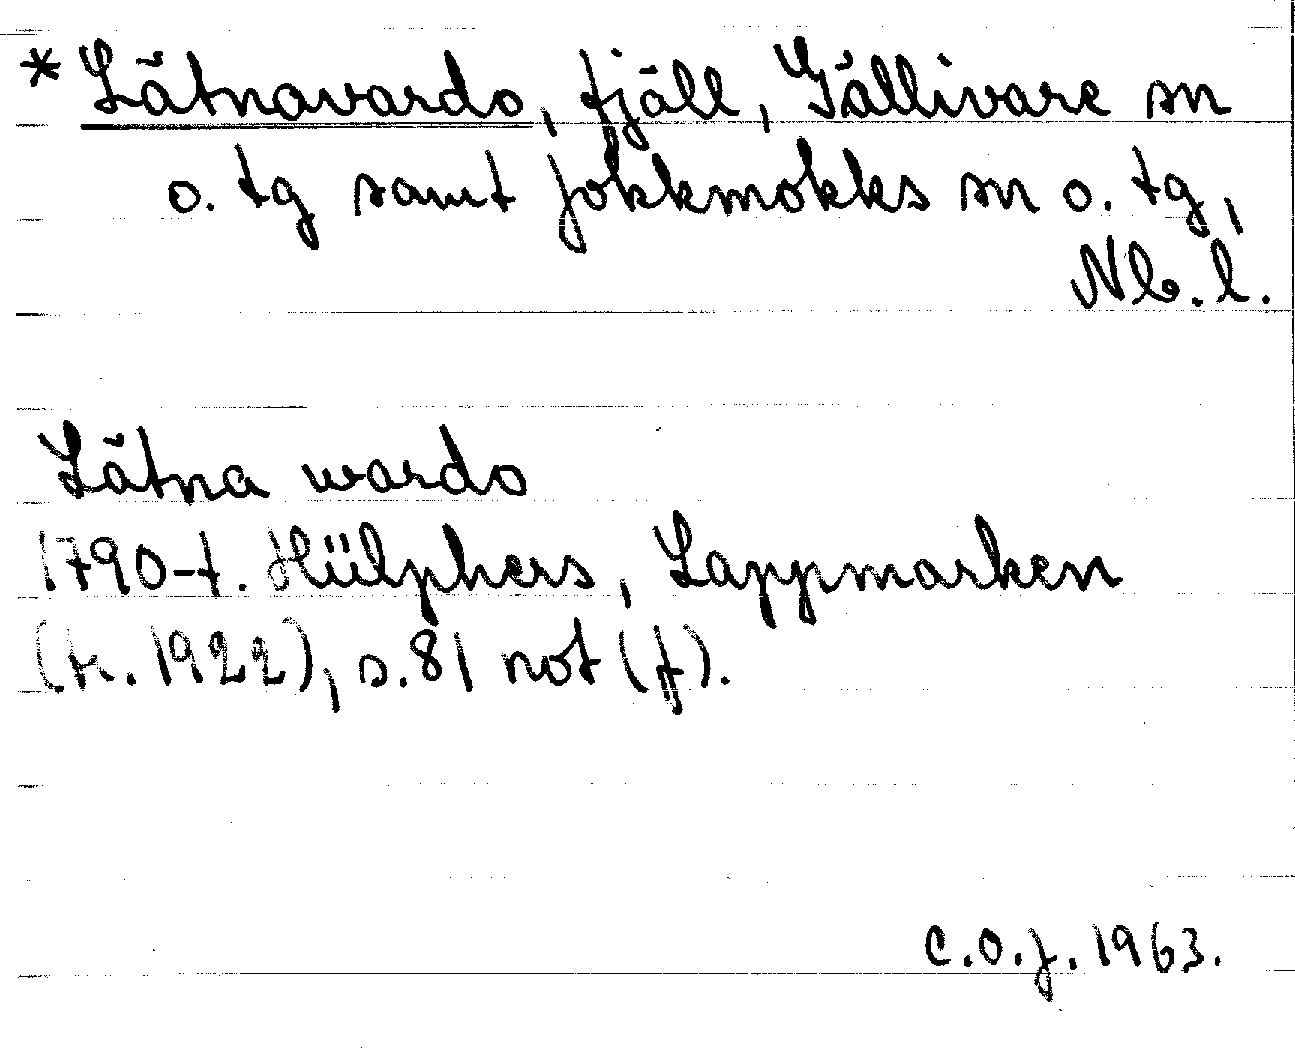 *Lätnavardo, fjäll, Gällivare sn
o. tg samt Jokkmokks sn o. tg,
Nb. l.
Lätna wardo
1790-t. Hülphers, Lappmarken
(tr. 1922), s. 81 not (f).
C.O.J. 1963.